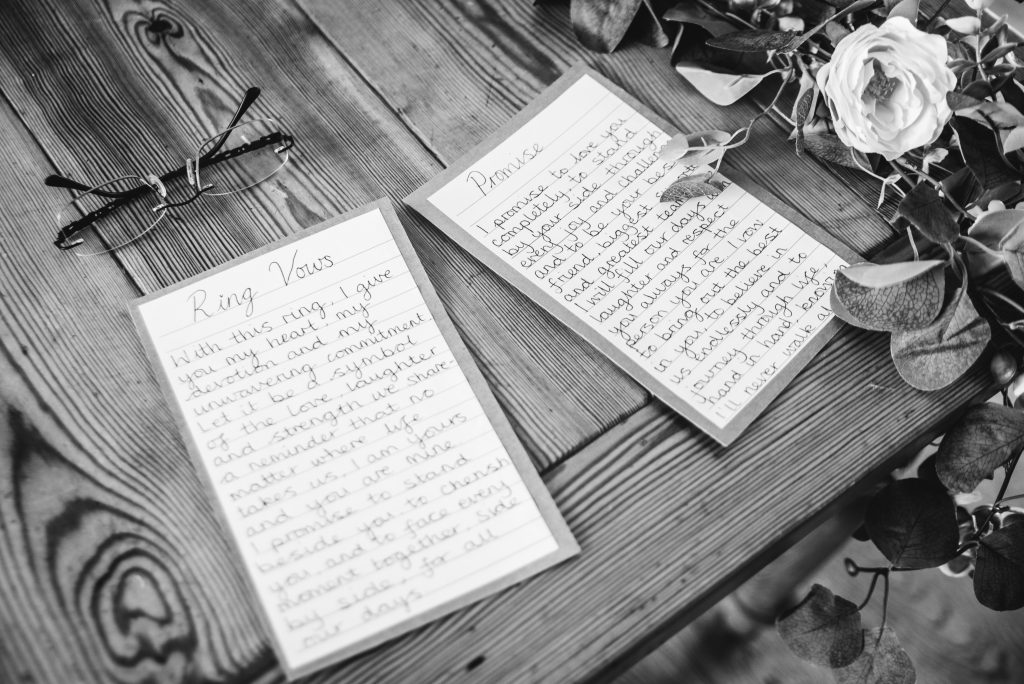 Ring Vows
With this ring, I give
you my heart, my
devotion and my
unwavering commitment
Let it be a symbol
of the love, laughter
and strength we share
a reminder that no
matter where life
takes us, I am yours
and you are mine
I promise to stand
beside you, to cherish
you and to face every
moment together, side
by side, for all
our days
Promise
I promise to love you
completely, to stand
by your side through
every joy and challenge
and to be your best
friend, biggest
and greatest team
will fill our days
laughter and respect
you always for the
person you are. I vow
to bring out the best
in you to believe in
us endlessly and to
journey through life,
hand in hand
I'll never walk